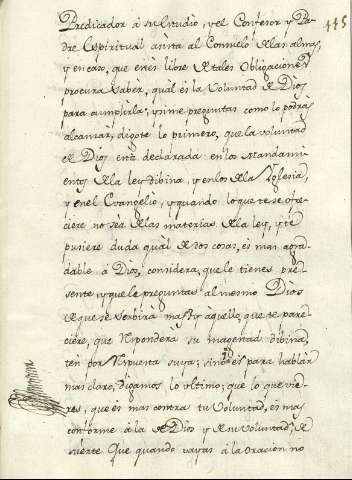 115
Predicador â su Estudio, y el Confesor y Pa-
dre Espiritual asista al Consuelo de las almas,
y en caso, que estès libre de tales Obligaciones
procura saber, quàl és la Voluntad de Dios
para cumplirla; y si me preguntas como lo podràs
alcanzar, digote lo primero, que la voluntad
de Dios està declarada en los Mandami-
entos de la ley dibina, y en los de la Yglesia,
y en el Evangelio, y quando lo que te se ofre-
ciere no sea de las materias de la ley, y te
pusiere duda quàl de dos cosas, és mas agra-
dable â Dios, considera, que le tienes pre-
sente, y que le preguntas al mesmo Dios
de que se serbirà mas, y aquello, que te pare-
ciere, que responderà su magestad dibina,
ten por respuesta suya; sino és para hablar
mas claro, digamos lo ultimo; que lo que vie-
res, que és mas contra tu Voluntad, és mas
conforme â la de Dios y de su voluntad, de
suerte que quando vayas â la oracion no